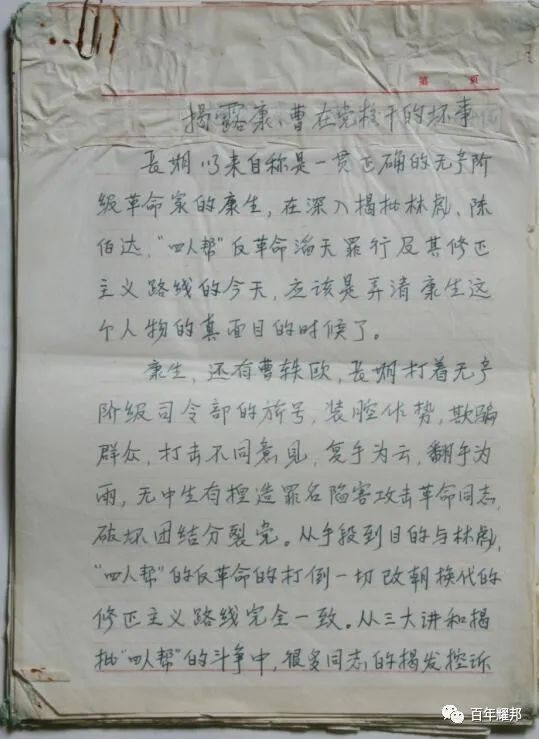 第 页
揭露康、曹在党校干的坏事
长期以来自称是一贯正确的无产阶
级革命家的康生，在深入揭批林彪、陈
伯达、“四人帮”反革命滔天罪行及其修正
主义路线的今天，应该是弄清康生这
个人物的真面目的时候了。
康生，还有曹轶欧，长期打着无产
阶级司令部的旗号，装腔作势，欺骗
群众，打击不同意见，复手为云，翻手为
雨，无中生有捏造罪名陷害攻击革命同志，
破坏团结分裂党。从手段到目的与林彪，
“四人帮”的反革命的打倒一切改朝换代的
修正主义路线完全一致。从三大讲和揭
批“四人帮”的斗争中，很多同志的揭发控诉
百年耀邦